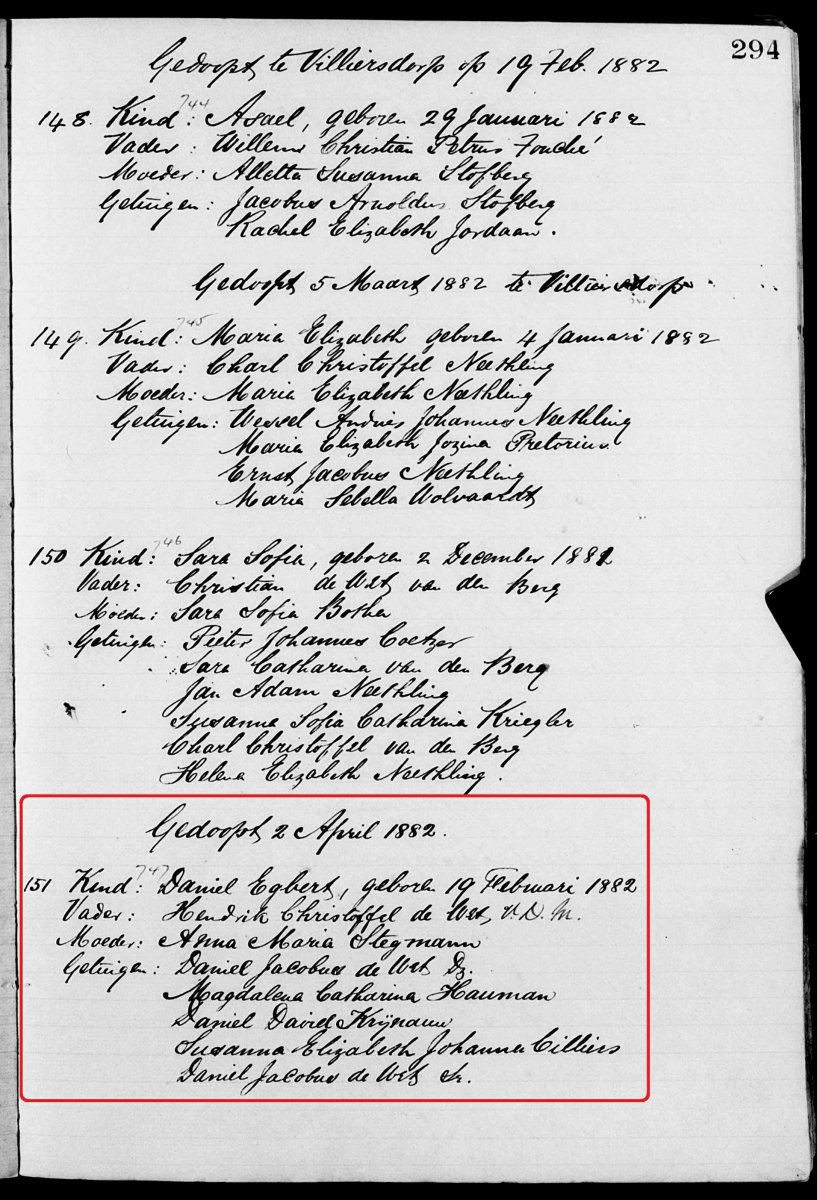 294
Gedoopt te Villiersdorp op 19 Feb. 1882
744
148. Kind: Asael, geboren 29 Januari 1882
Vader: Willem Christian Petrus Fouché
Moeder: Alletta Susanna Stofberg
Getuigen: Jacobus Arnoldus Stofberg
Rachel Elizabeth Jordaan.
Gedoopt 5 Maart 1882 te Villiersdorp
745
149. Kind: Maria Elizabeth geboren 4 Januari 1882
Vader: Charl Christoffel Neethling
Moeder: Maria Elizabeth Neethling
Getuigen: Wessel Andries Johannes Neethling
Maria Elizabeth Jozina Pretorius
Ernst Jacobus Neethling
Maria Sebella Wolvaardt
746
150 Kind: Sara Sofia, geboren 2 December 1881
Vader: Christian de Wet van den Berg
Moeder: Sara Sofia Botha
Getuigen: Pieter Johannes Coetzer
Sara Catharina van den Berg
Jan Adam Neethling
Susanna Sofia Catharina Kriegler
Charl Christoffel van den Berg
Helena Elizabeth Neethling.
Gedoopt 2 April 1882.
747
151 Kind: Daniel Egbert, geboren 19 Februari 1882
Vader: Hendrik Christoffel de Wet, V.D.M.
Moeder: Anna Maria Stegmann
Getuigen: Daniel Jacobus de Wet Dz.
Magdalena Catharina Hauman
Daniel David Krynauw
Susanna Elizabeth Johanna Cilliers
Daniel Jacobus de Wet Sr.